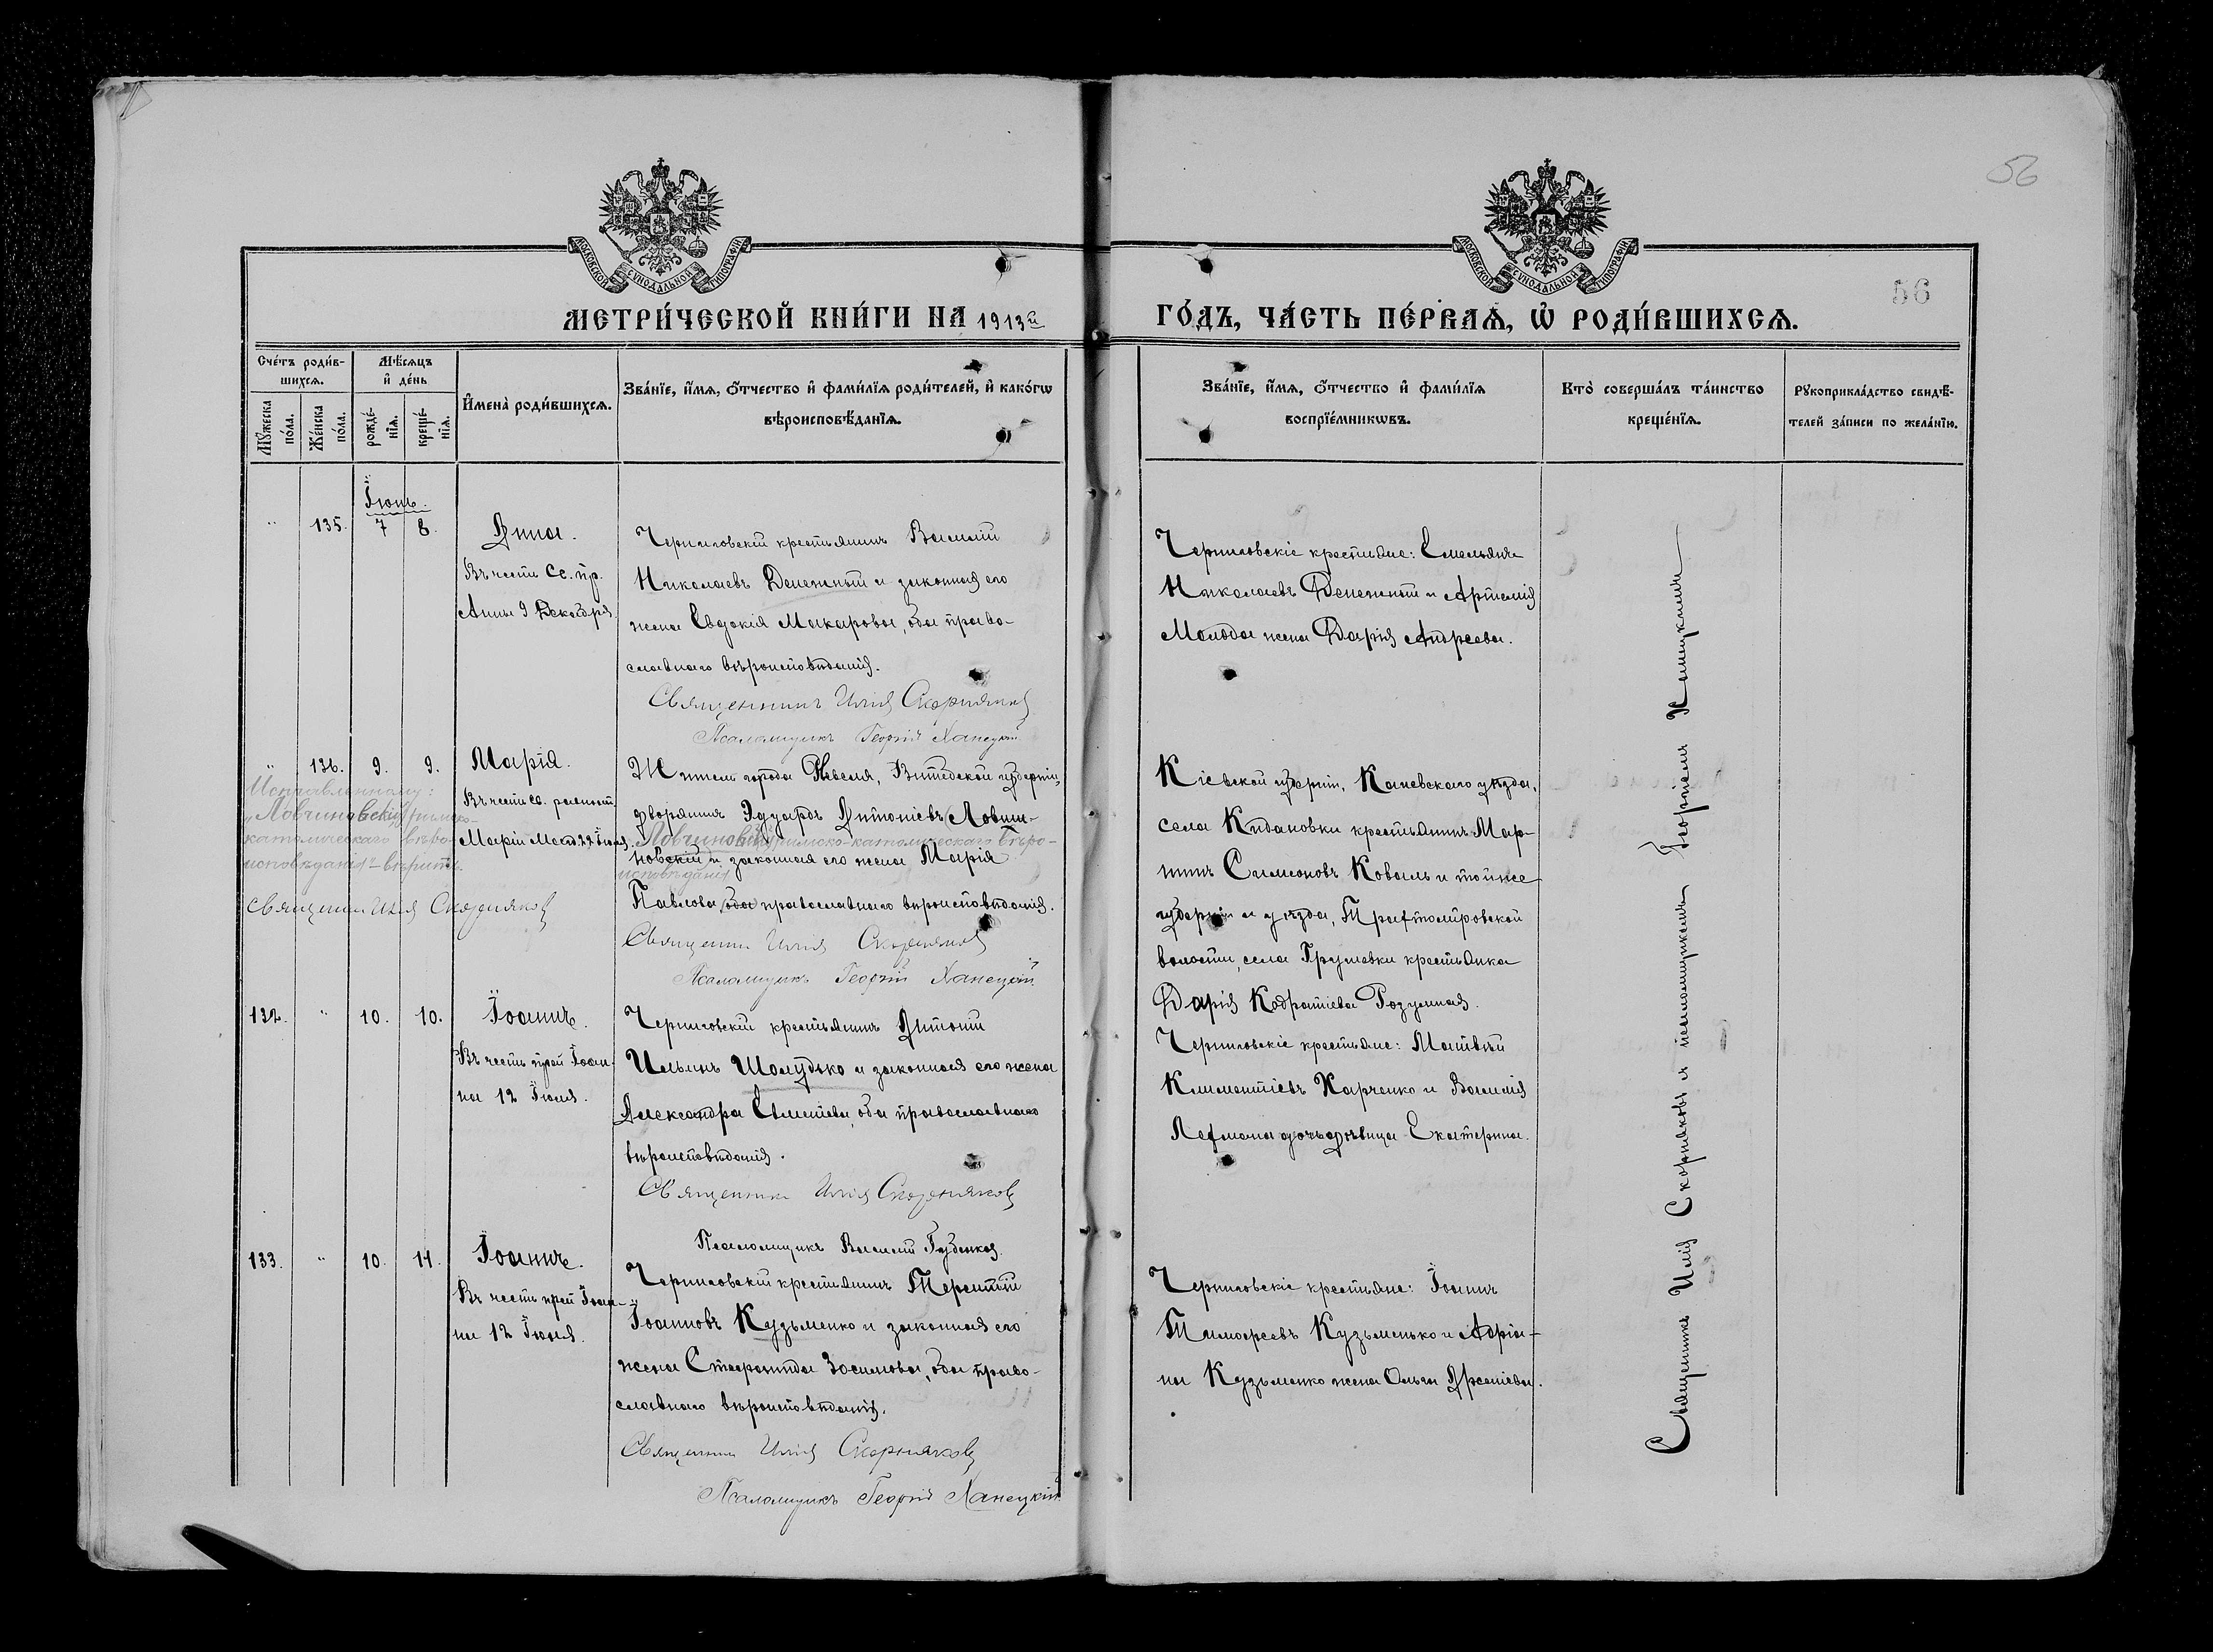 56
МОСКОВСКОЙ СУНОДАЛЬНОЙ ТИПОГРАФІИ
МОСКОВСКОЙ СУНОДАЛЬНОЙ ТИПОГРАФІИ
56
МЕТРИ́ЧЕСКОЙ КНИ́ГИ НА 1913й
ГО́ДЪ, ЧА́СТЬ ПЕ́РВАѦ, Ѡ РОДИ́ВШИХСѦ.
Сче́тъ роди́в-
шихсѧ.
Мѣ́сѧцъ
и҆ де́нь
Мꙋ́жеска
по́ла.
Же́нска
по́ла.
рожде́-
нїѧ.
креще́-
нїѧ.
И҆мена̀ роди́вшихсѧ.
Зва́нїе, и҆́мѧ, ѻ҆́тчество и҆ фами́лїѧ роди́телей, и҆ како́гѡ
вѣроисповѣ́данїѧ.
Зва́нїе, и҆́мѧ, ѻ҆́тчество и҆ фами́лїѧ
воспрїе́мникѡвъ.
Кто̀ соверша́лъ та́инство
креще́нїѧ.
Рꙋкоприкла́дство свидѣ́-
телей за́писи по жела́нїю.
Іюнь.
" 135. 7 8.
Анна.
Въ честь св. пр.
Анны 9 Декабря
Черниловскій крестьянинъ Василій
Николаевъ Денежный и законная его
жена Евдокія Макарова, оба право-
славнаго вѣроисповѣданія.
Священникъ Илія Скорняковъ
Псаломщикъ Георгій Ханецкій
Черниловскіе крестьяне: Емельянъ
Николаевъ Денежный и Артемія
Молода жена Дарія Андреева.
" 136. 9. 9.
Марія.
Въ честь св. равноап.
Маріи Магд. 22 Іюля.
Исправленному:
"Ловчиновскій, римско-
католическаго вѣро-
исповѣданія" вѣрить.
Священникъ Илія Скорняковъ
Житель города Невеля, Витебской губерніи,
дворянинъ Эдуардъ Антоніевъ (Ловши-
Ловчиновскій римско-католическаго вѣро-
новскій и законная его жена Марія
исповѣданія
Павлова (оба) православнаго вѣроисповѣданія.
Священникъ Илія Скорняковъ
Псаломщикъ Георгій Ханецкій
Кіевской губерніи, Каневскаго уѣзда,
села Кидановки крестьянинъ Мар-
тинъ Симеоновъ Коваль и той же
губерніи и уѣзда, Трахтомировской
волости, села Грушевки крестьянка
Дарія Кодратіева Розумная.
132. " 10. 10.
Іоаннъ.
Въ честь преп. Іоан-
на 12 Іюня.
Черниловскій крестьянинъ Антоній
Ильинъ Шолудько и законная его жена
Александра Евменіева, оба православнаго
вѣроисповѣданія.
Священникъ Илія Скорняковъ
Псаломщикъ Василій Губенко.
Черниловскіе крестьяне: Матвѣй
Климентіевъ Харченко и Василія
Лахмана дочь дѣвица Екатерина.
133. " 10. 11.
Іоаннъ.
Въ честь преп. Іоан-
на 12 Іюня.
Черниловскій крестьянинъ Терентій
Іоанновъ Кузьменко и законная его
жена Стефанида Зосимова, оба право-
славнаго вѣроисповѣданія.
Священникъ Илія Скорняковъ
Псаломщикъ Георгій Ханецкій
Черниловскіе крестьяне: Іоаннъ
Тимофеевъ Кузьменко и Адріа-
на Кузьменко жена Ольга Арсеніева.
Священникъ Илія Скорняковъ и псаломщикомъ Георгіемъ Ханецкимъ